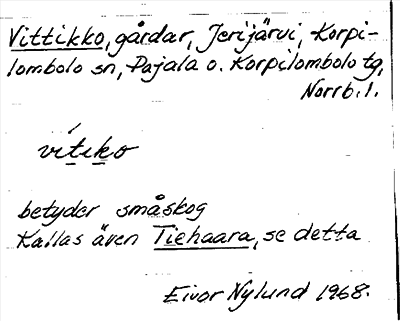 Vittikko, gårdar, Jerijärvi, Korpi-
lombolo sn, Pajala o. Korpilombolo tg,
Norrb. l.
vítiko
betyder småskog
Kallas även Tiehaara, se detta
Eivor Nylund 1968.